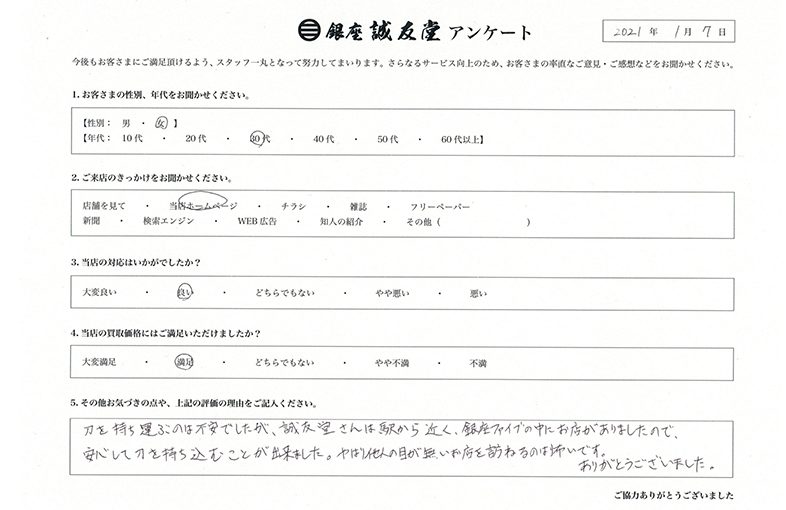 銀座 誠友堂 アンケート
2021年 1月 7日
今後もお客さまにご満足頂けるよう、スタッフ一丸となって努力してまいります。さらなるサービス向上のため、お客さまの率直なご意見・ご感想などをお聞かせください。
1. お客さまの性別、年代をお聞かせください。
【性別： 男 ・ 女 】
【年代： 10代 ・ 20代 ・ 30代 ・ 40代 ・ 50代 ・ 60代以上】
2. ご来店のきっかけをお聞かせください。
店舗を見て ・ 当店ホームページ ・ チラシ ・ 雑誌 ・ フリーペーパー
新聞 ・ 検索エンジン ・ WEB広告 ・ 知人の紹介 ・ その他（ ）
3. 当店の対応はいかがでしたか？
大変良い ・ 良い ・ どちらでもない ・ やや悪い ・ 悪い
4. 当店の買取価格にはご満足いただけましたか？
大変満足 ・ 満足 ・ どちらでもない ・ やや不満 ・ 不満
5. その他お気づきの点や、上記の評価の理由をご記入ください。
刀を持ち運ぶのは不安でしたが、誠友堂さんは駅から近く、銀座ファイブの中にお店がありましたので、
安心して刀を持ち込むことが出来ました。やはり他人の目が無いお店を訪ねるのは怖いです。
ありがとうございました。
ご協力ありがとうございました